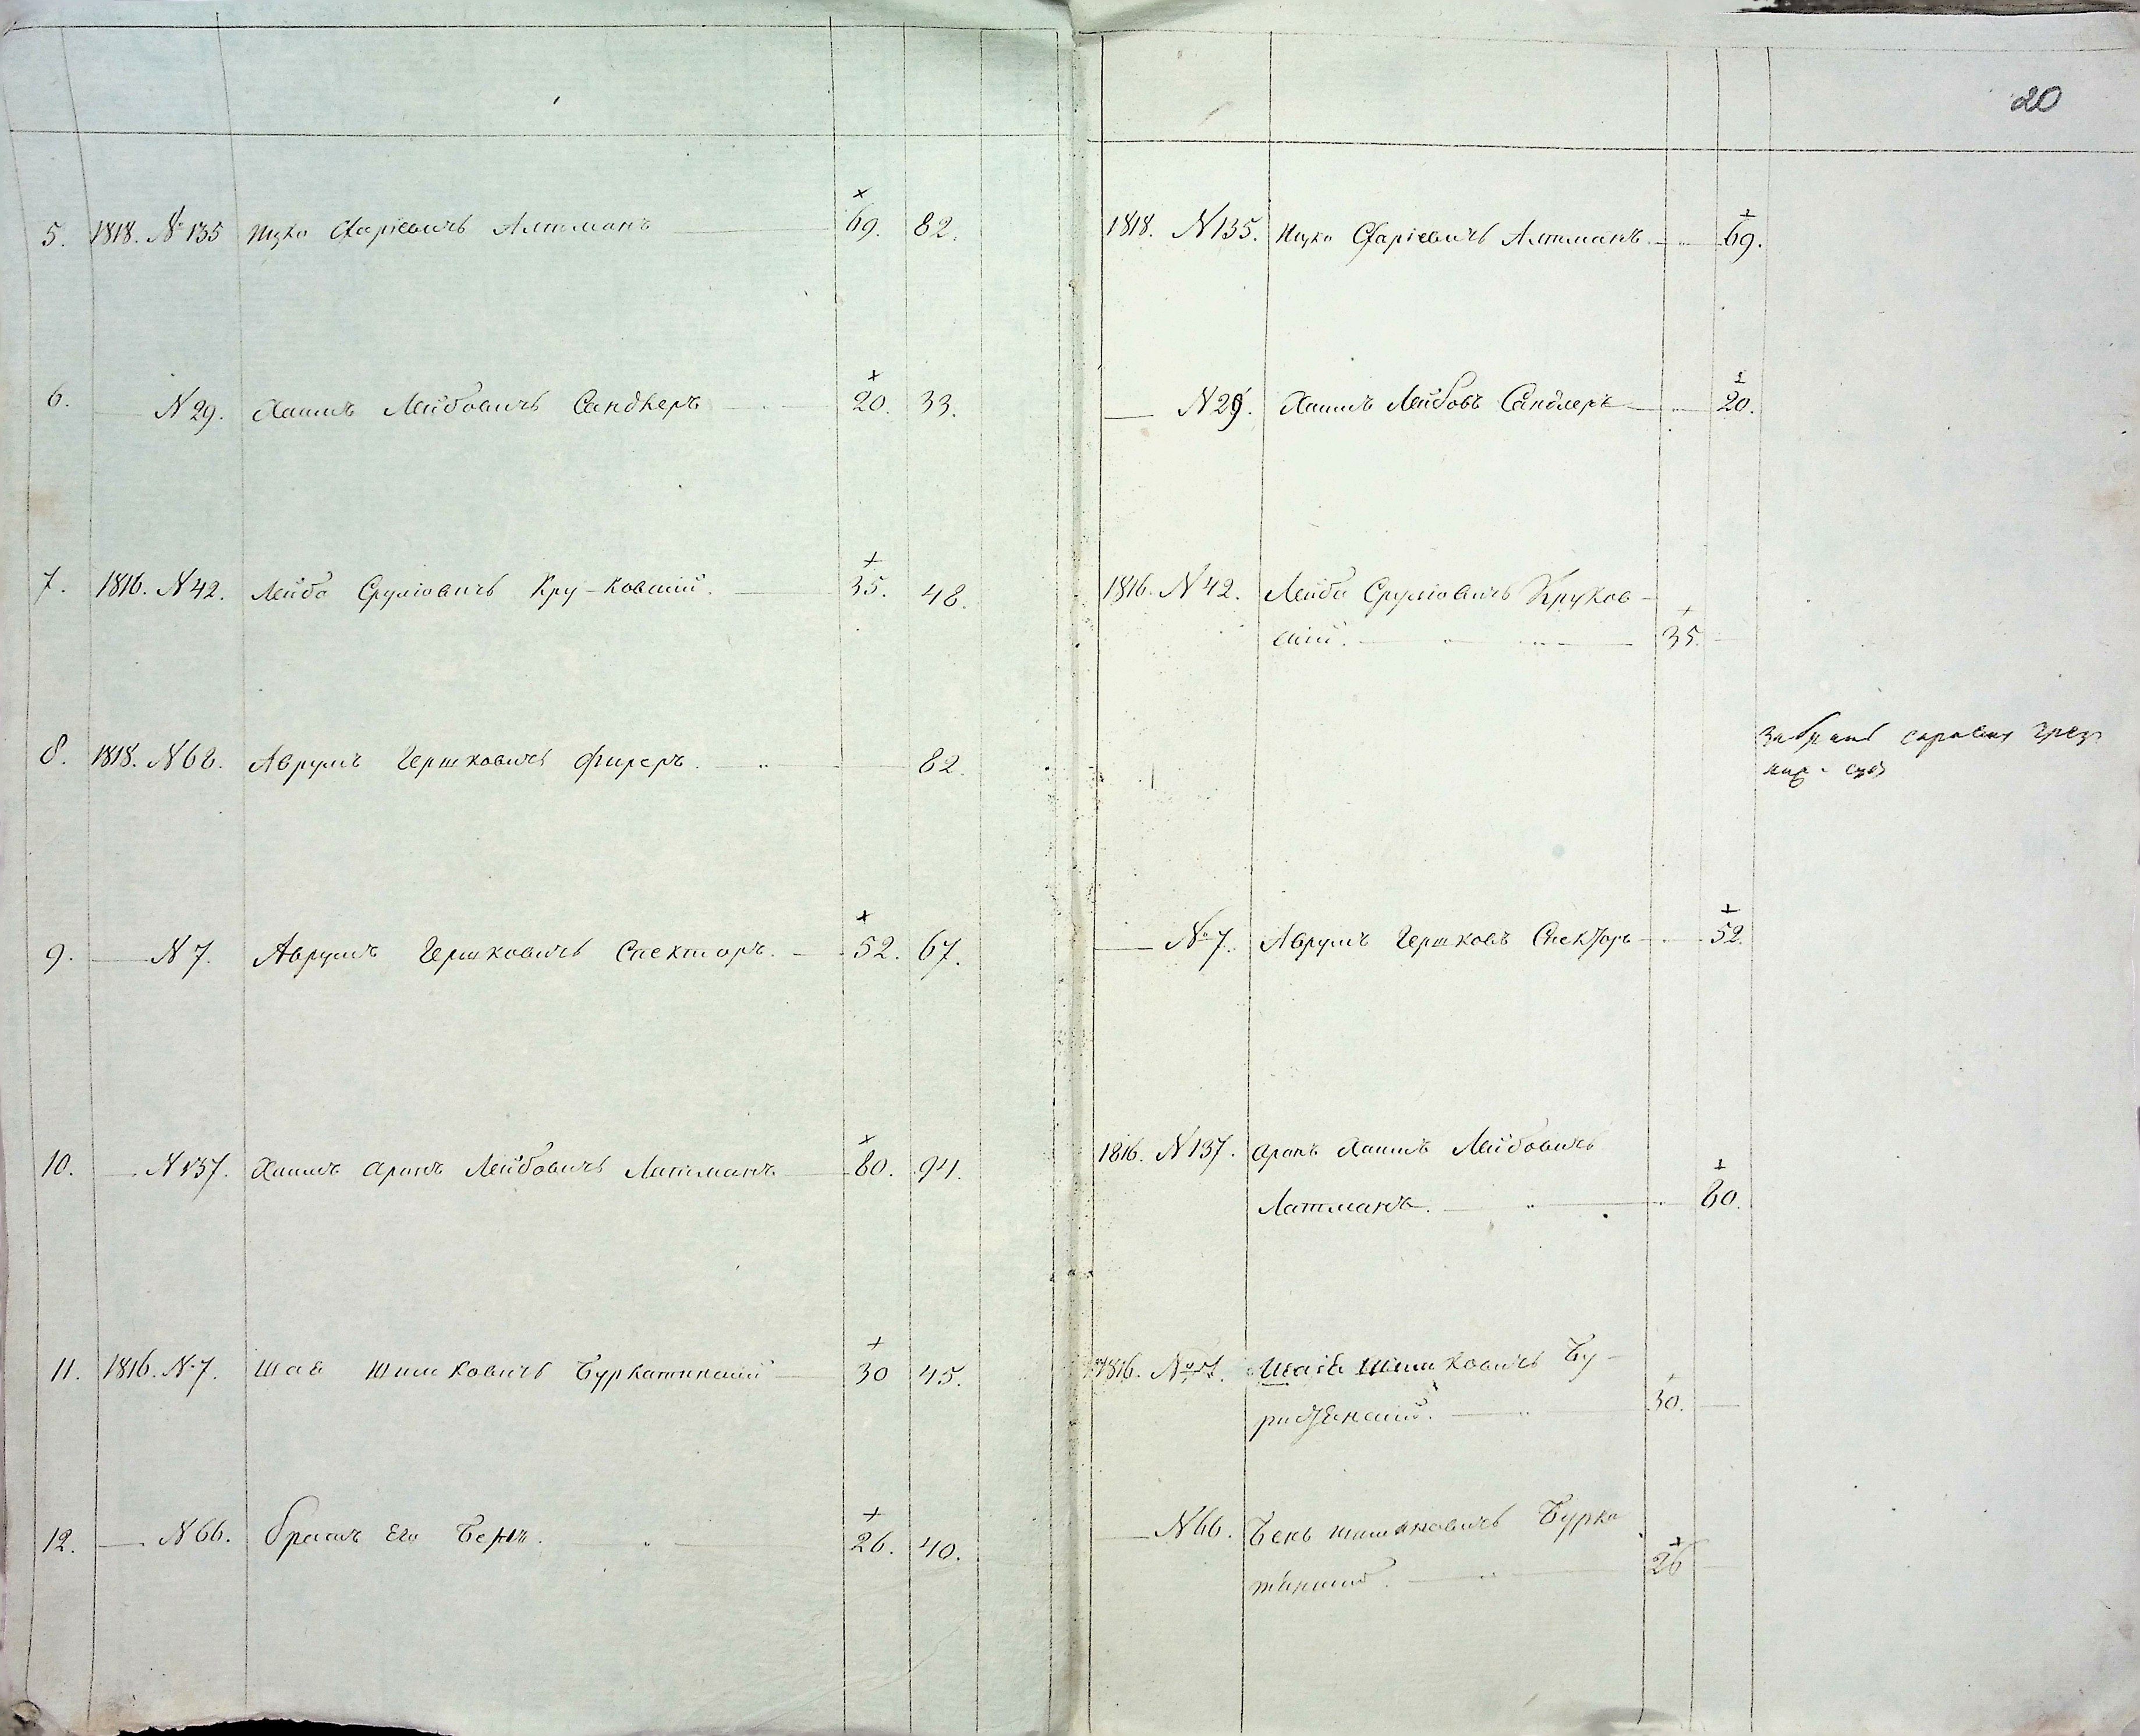 20
5. 1818. № 135 Ицко Сфаріевичъ Алтманъ 69. 82.
6. N 29. Хаимъ Лейбовичъ Сандлеръ 20. 33.
7. 1816. N 42. Лейба Сруліовичъ Кру-ковскій. 35. 48.
8. 1818. N 68. Аврумъ Гершковичъ Фиреръ. 82.
9. N 7. Аврумъ Гершковичъ Спекторъ. 52. 67.
10. N 137. Хаимъ Аронъ Лейбовичъ Латманъ 80. 94.
11. 1816. N 7. Шая Шимковичъ Буркатинскій 30 45.
12. N 66. братъ Его Беръ. 26. 40.
1818. N 135. Ицко Сфаріевичъ Алтманъ 69.
N 29. Хаимъ Лейбовъ Сандлеръ 20.
1816. N 42. Лейба Сруліовичъ Круков-
скій. 35.
№ 7. Аврумъ Гершковъ Спекторъ 52.
1816. N 137. Аронъ Хаимъ Лейбовичъ
Латманъ. 80.
1816. Шимковичъ Бу-
30.
N 66. Шимковичъ Бурка
тинскій. 26